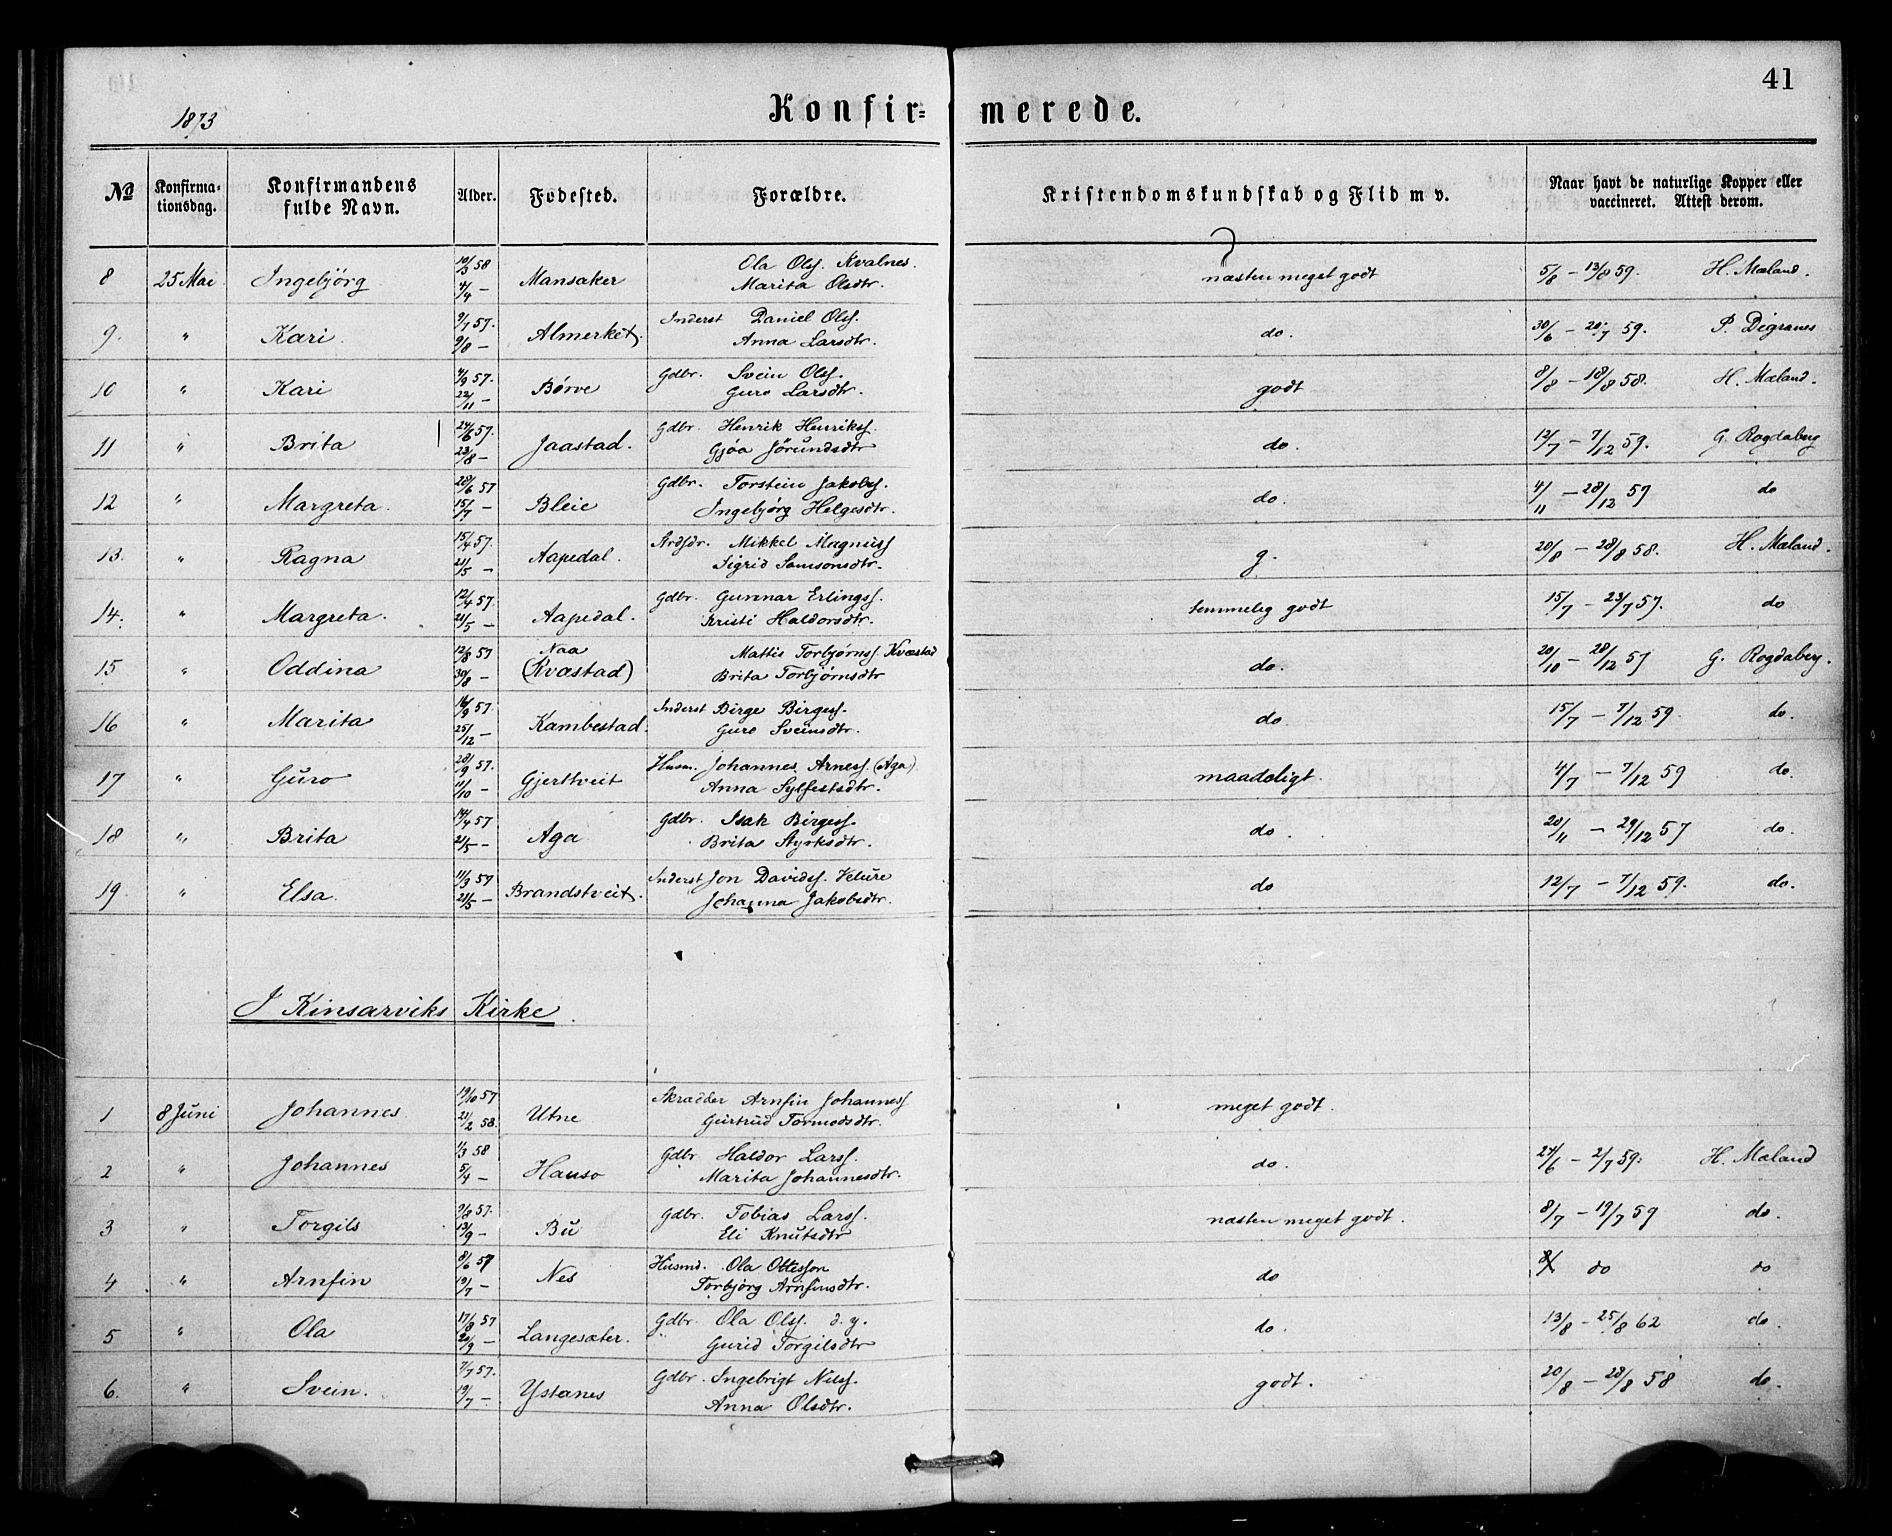 41
1873
Konfir= merede.
No Konfirma-tionsdag. Konfirmandens fulde Navn. Alder. Fødested. Forældre. Kristendomskundskab og Flid m v. Naar havt de naturlige Kopper eller vaccineret. Attest derom.
8 25 Mai Ingebjörg 10/3 58 4/4 — Mansaker Ola Olss. Kvalnes. Marita Olsdtr. næsten meget godt 5/8 — 13/8 59. H. Mæland.
9. " Kari. 9/7 57. 9/8 — Almerket. Inderst Daniel Olss. Anna Larsdtr. do. 30/6 — 20/7 59. P. Digranes
10 " Kari 4/9 57. 22/11 — Børve Gdbr. Svein Olss. Guro Larsdtr. godt 8/8 — 18/8 58. H. Mæland.
11 " Brita 24/6 57. 23/8 — Jaastad. Gdbr. Henrik Henrikss. Gjøa Jörundsdtr do. 12/7 — 7/12 59. G. Rogdaberg
12 " Margreta. 28/6 57 15/7 — Bleie Gdbr. Torstein Jakobss. Ingebjørg Helgesdtr. do. 4/11 — 28/12 57 do
13. " Ragna 15/4 57. 21/5 — Aapedal. Mikkel Magnuss Sigrid Samsonsdtr. g. 20/8 — 28/8 58. H. Mæland.
14. " Margreta. 12/4 57. 21/5 — Aapedal. Gdbr. Gunnar Erlingss. Kristi Haldorsdtr. temmelig godt 15/7 — 23/7 57. do
15 " Oddina 12/8 57 30/8 — Naa (Kvæstad) Mattis Torbjørnss. Kvæstad Brita Torbjørnsdtr do. 20/10 — 28/12 57 G. Rogdaberg.
16 " Marita 16/9 57. 25/12 — Kambestad. Inderst Birge Birgess. Guro Sveinsdtr. do. 15/7 — 7/12 59. do.
17 " Guro 28/9 57. 11/10 — Gjerttveit Husm. Johannes Arness. (Aga) Anna Sylfestsdtr. maadeligt. 4/7 — 7/12 59 do.
18 " Brita 14/4 57 21/5 — Aga Gdbr. Isak Birgess. Brita Styrksdtr. do. 20/11 — 29/12 57 do.
19. " Elsa. 11/3 57 21/5 — Brandstveit. Inderst Jon Davidss. Velure Johanna Jakobsdtr. do 12/7 — 7/12 59. do.
I Kinsarviks Kirke.
1 8 Juni Johannes 19/10 57 21/2 58. Utne Skrædder Arnfin Johanness Gürtrud Tormodsdtr. meget godt.
2 " Johannes 11/3 58 5/4 — Hauso Gdbr. Haldor Larss. Marita Johannesdtr. do. 24/6 — 2/7 59. H. Mæland
3 " Torgils 9/8 57. 13/9 — Bu Gdbr. Tobias Larss. Eli Knutsdtr næsten meget godt. 8/7 — 19/7 59 do.
4 " Arnfin 8/6 57 19/7 — Nes Husmd. Ola Ottesson Torbjørg Arnfinsdtr. do do do
5 " Ola 17/8 57 20/9 — Langesæter. Gdbr. Ola Olss. d. y. Gurid Torgilsdtr do. 13/8 — 25/8 62 do.
6. " Svein. 7/7 57. 19/7 — Ystanes Gdbr. Ingebrigt Nilss. Anna Olsdtr. godt. 20/8 — 28/8 58 do.